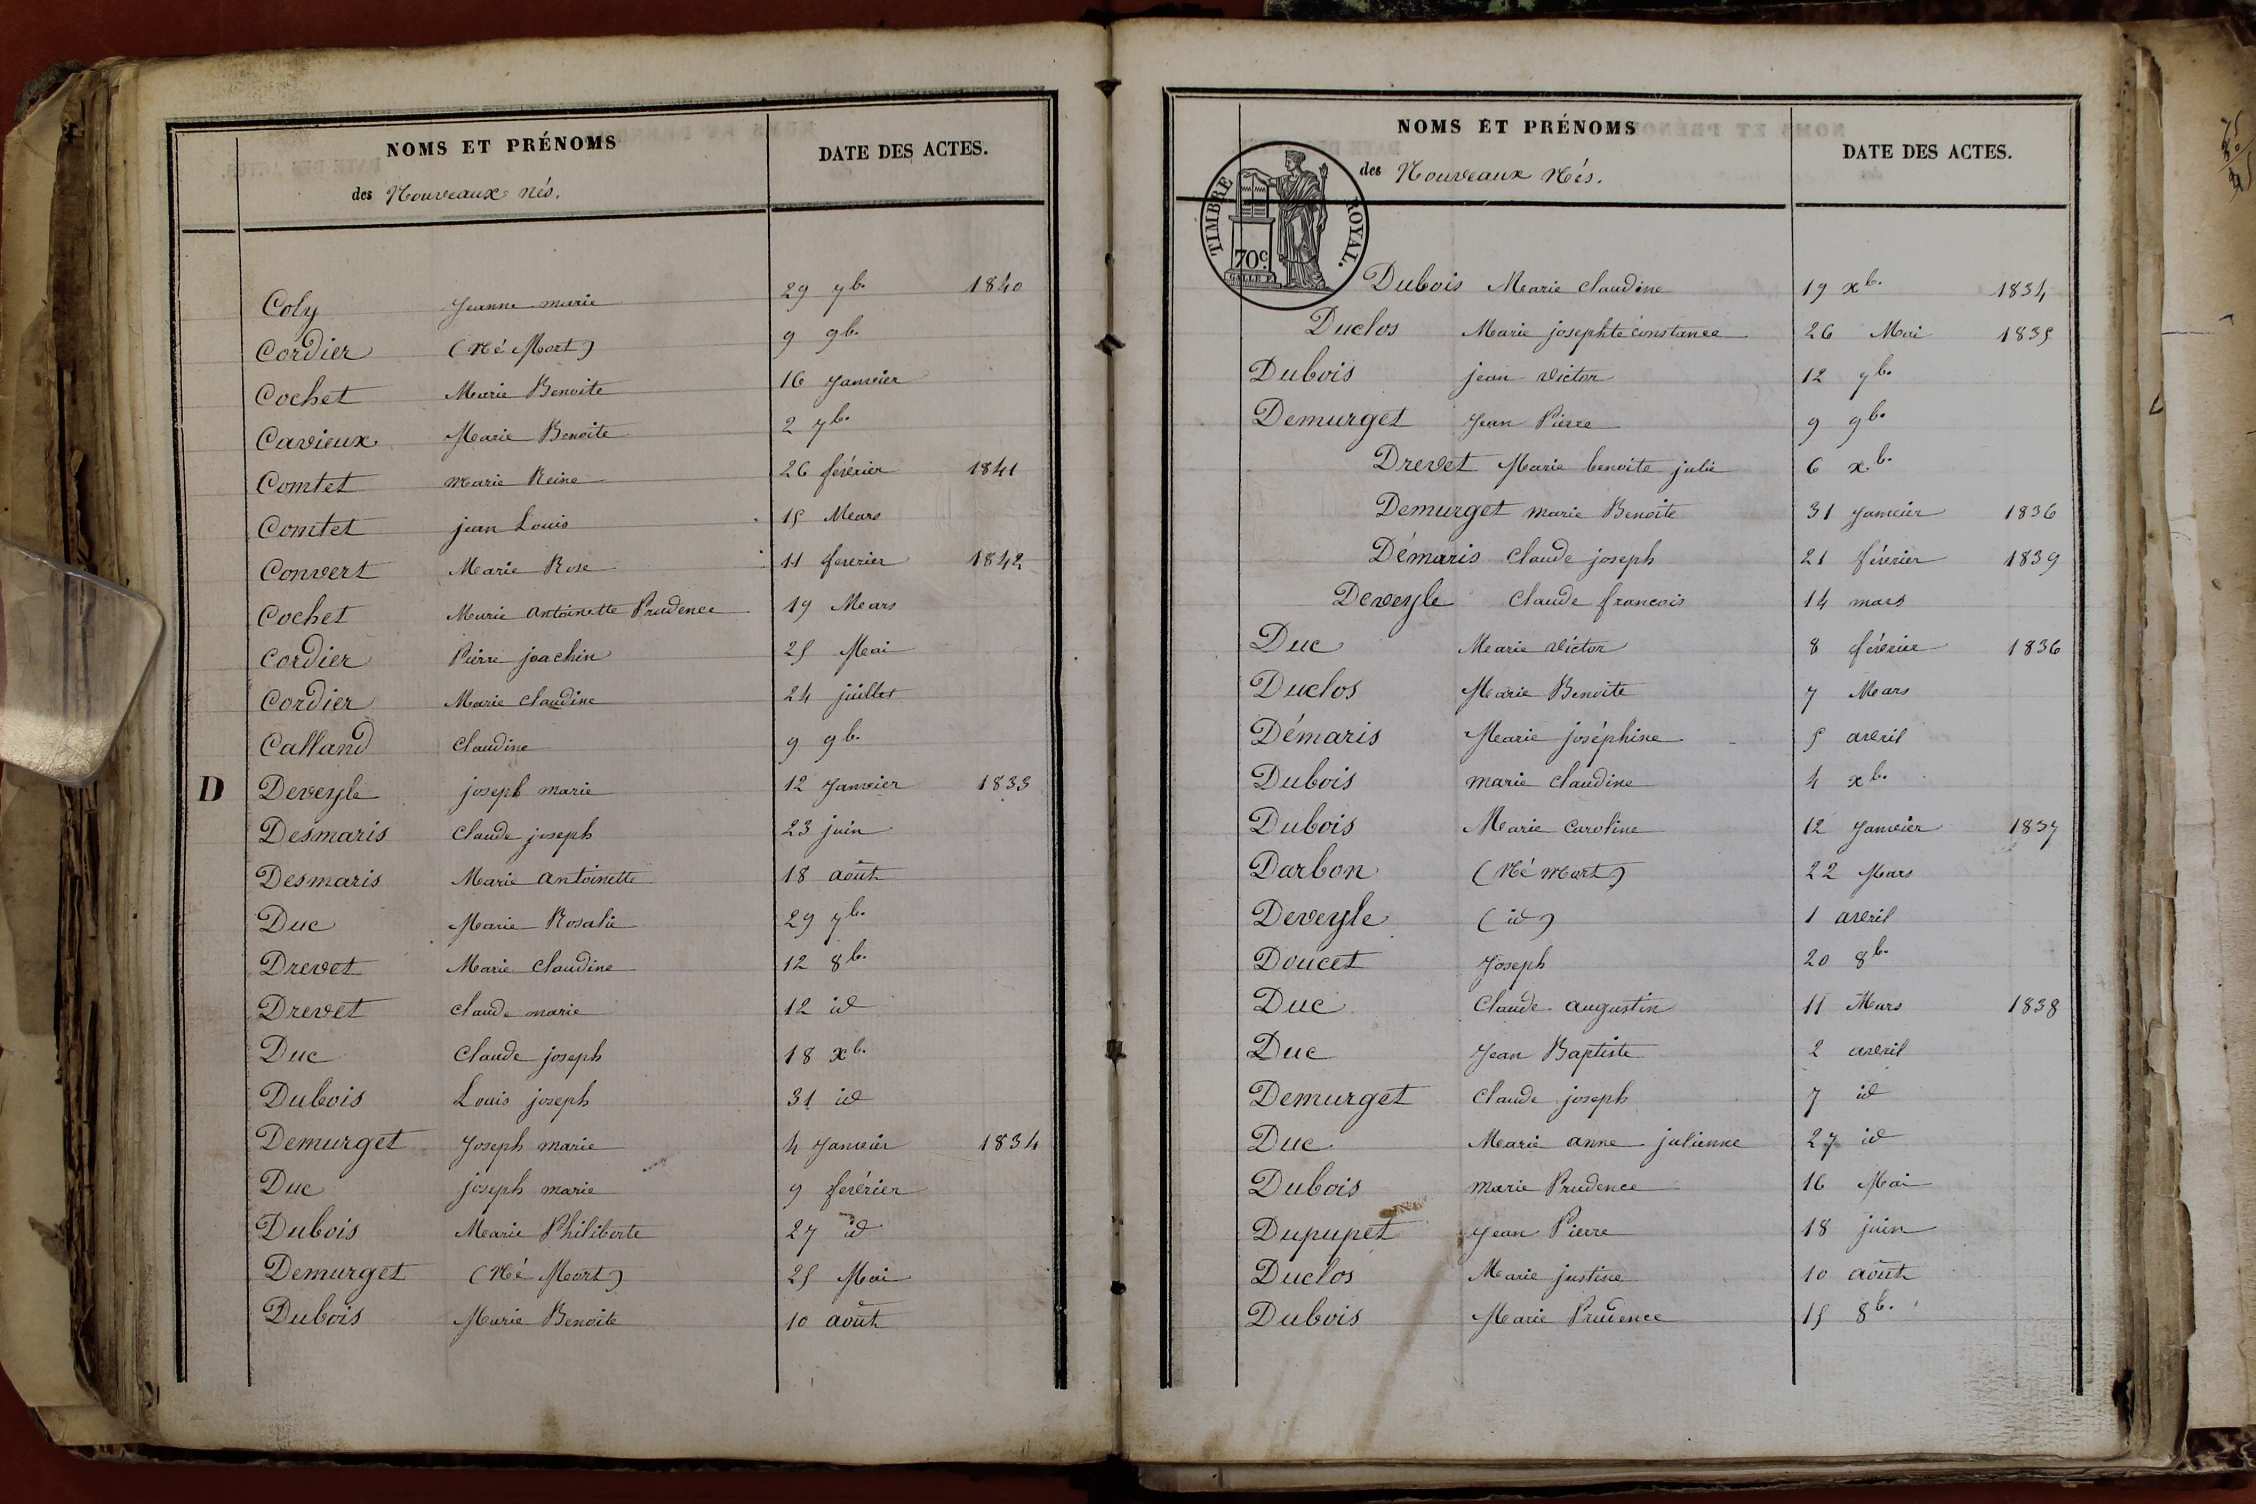 NOMS ET PRÉNOMS
des Nouveaux nés.
DATE DES ACTES.
Coly Jeanne marie 29 7b. 1840
Cordier (Né Mort) 9 9b.
Cochet Marie Benoite 16 Janvier
Cavieux Marie Benoite 2 7b.
Comtet Marie Reine 26 février 1841
Comtet jean Louis 15 Mars
Convert Marie Rose 11 fevrier 1842
Cochet Marie Antoinette Prudence 19 Mars
Cordier Pierre joachin 25 Mai
Cordier Marie claudine 24 juillet
Calland Claudine 9 9b.
D Deveyle joseph marie 12 Janvier 1833
Desmaris Claude joseph 23 juin
Desmaris Marie antoinette 18 août
Duc Marie Rosalie 29 7b.
Drevet Marie Claudine 12 8b.
Drevet Claude marie 12 id
Duc Claude joseph 18 xb.
Dubois Louis joseph 31 id
Demurget Joseph marie 4 Janvier 1834
Duc joseph marie 9 février
Dubois Marie Philiberte 27 id
Demurget (Né Mort) 25 Mai
Dubois Marie Benoite 10 août
NOMS ET PRÉNOMS
des Nouveaux Nés.
DATE DES ACTES.
TIMBRE ROYAL.
70c.
Dubois Marie claudine 19 xb. 1834
Duclos Marie josephte constance 26 Mai 1835
Dubois jean victor 12 7b.
Demurget Jean Pierre 9 9b.
Drevet Marie benoite julie 6 xb.
Demurget marie Benoite 31 Janvier 1836
Démaris Claude joseph 21 février 1839
Deveyle Claude francois 14 mars
Duc Marie victor 8 février 1836
Duclos Marie Benoite 7 Mars
Démaris Marie joséphine 5 avril
Dubois marie Claudine 4 xb.
Dubois Marie Caroline 12 Janvier 1837
Darbon (Né mort) 22 Mars
Deveyle (id) 1 avril
Doucet Joseph 20 8b.
Duc Claude augustin 11 Mars 1838
Duc Jean Baptiste 2 avril
Demurget Claude joseph 7 id
Duc Marie anne julienne 27 id
Dubois Marie Prudence 16 Mai
Dupupet Jean Pierre 18 juin
Duclos Marie justine 10 août
Dubois Marie Prudence 15 8b.